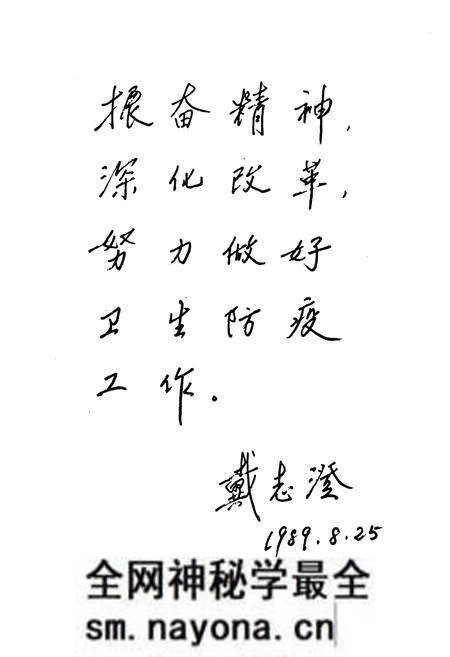 振奋精神,
深化改革,
努力做好
卫生防疫
工作.
戴志澄
1989.8.25
全网神秘学最全
sm.nayona.cn